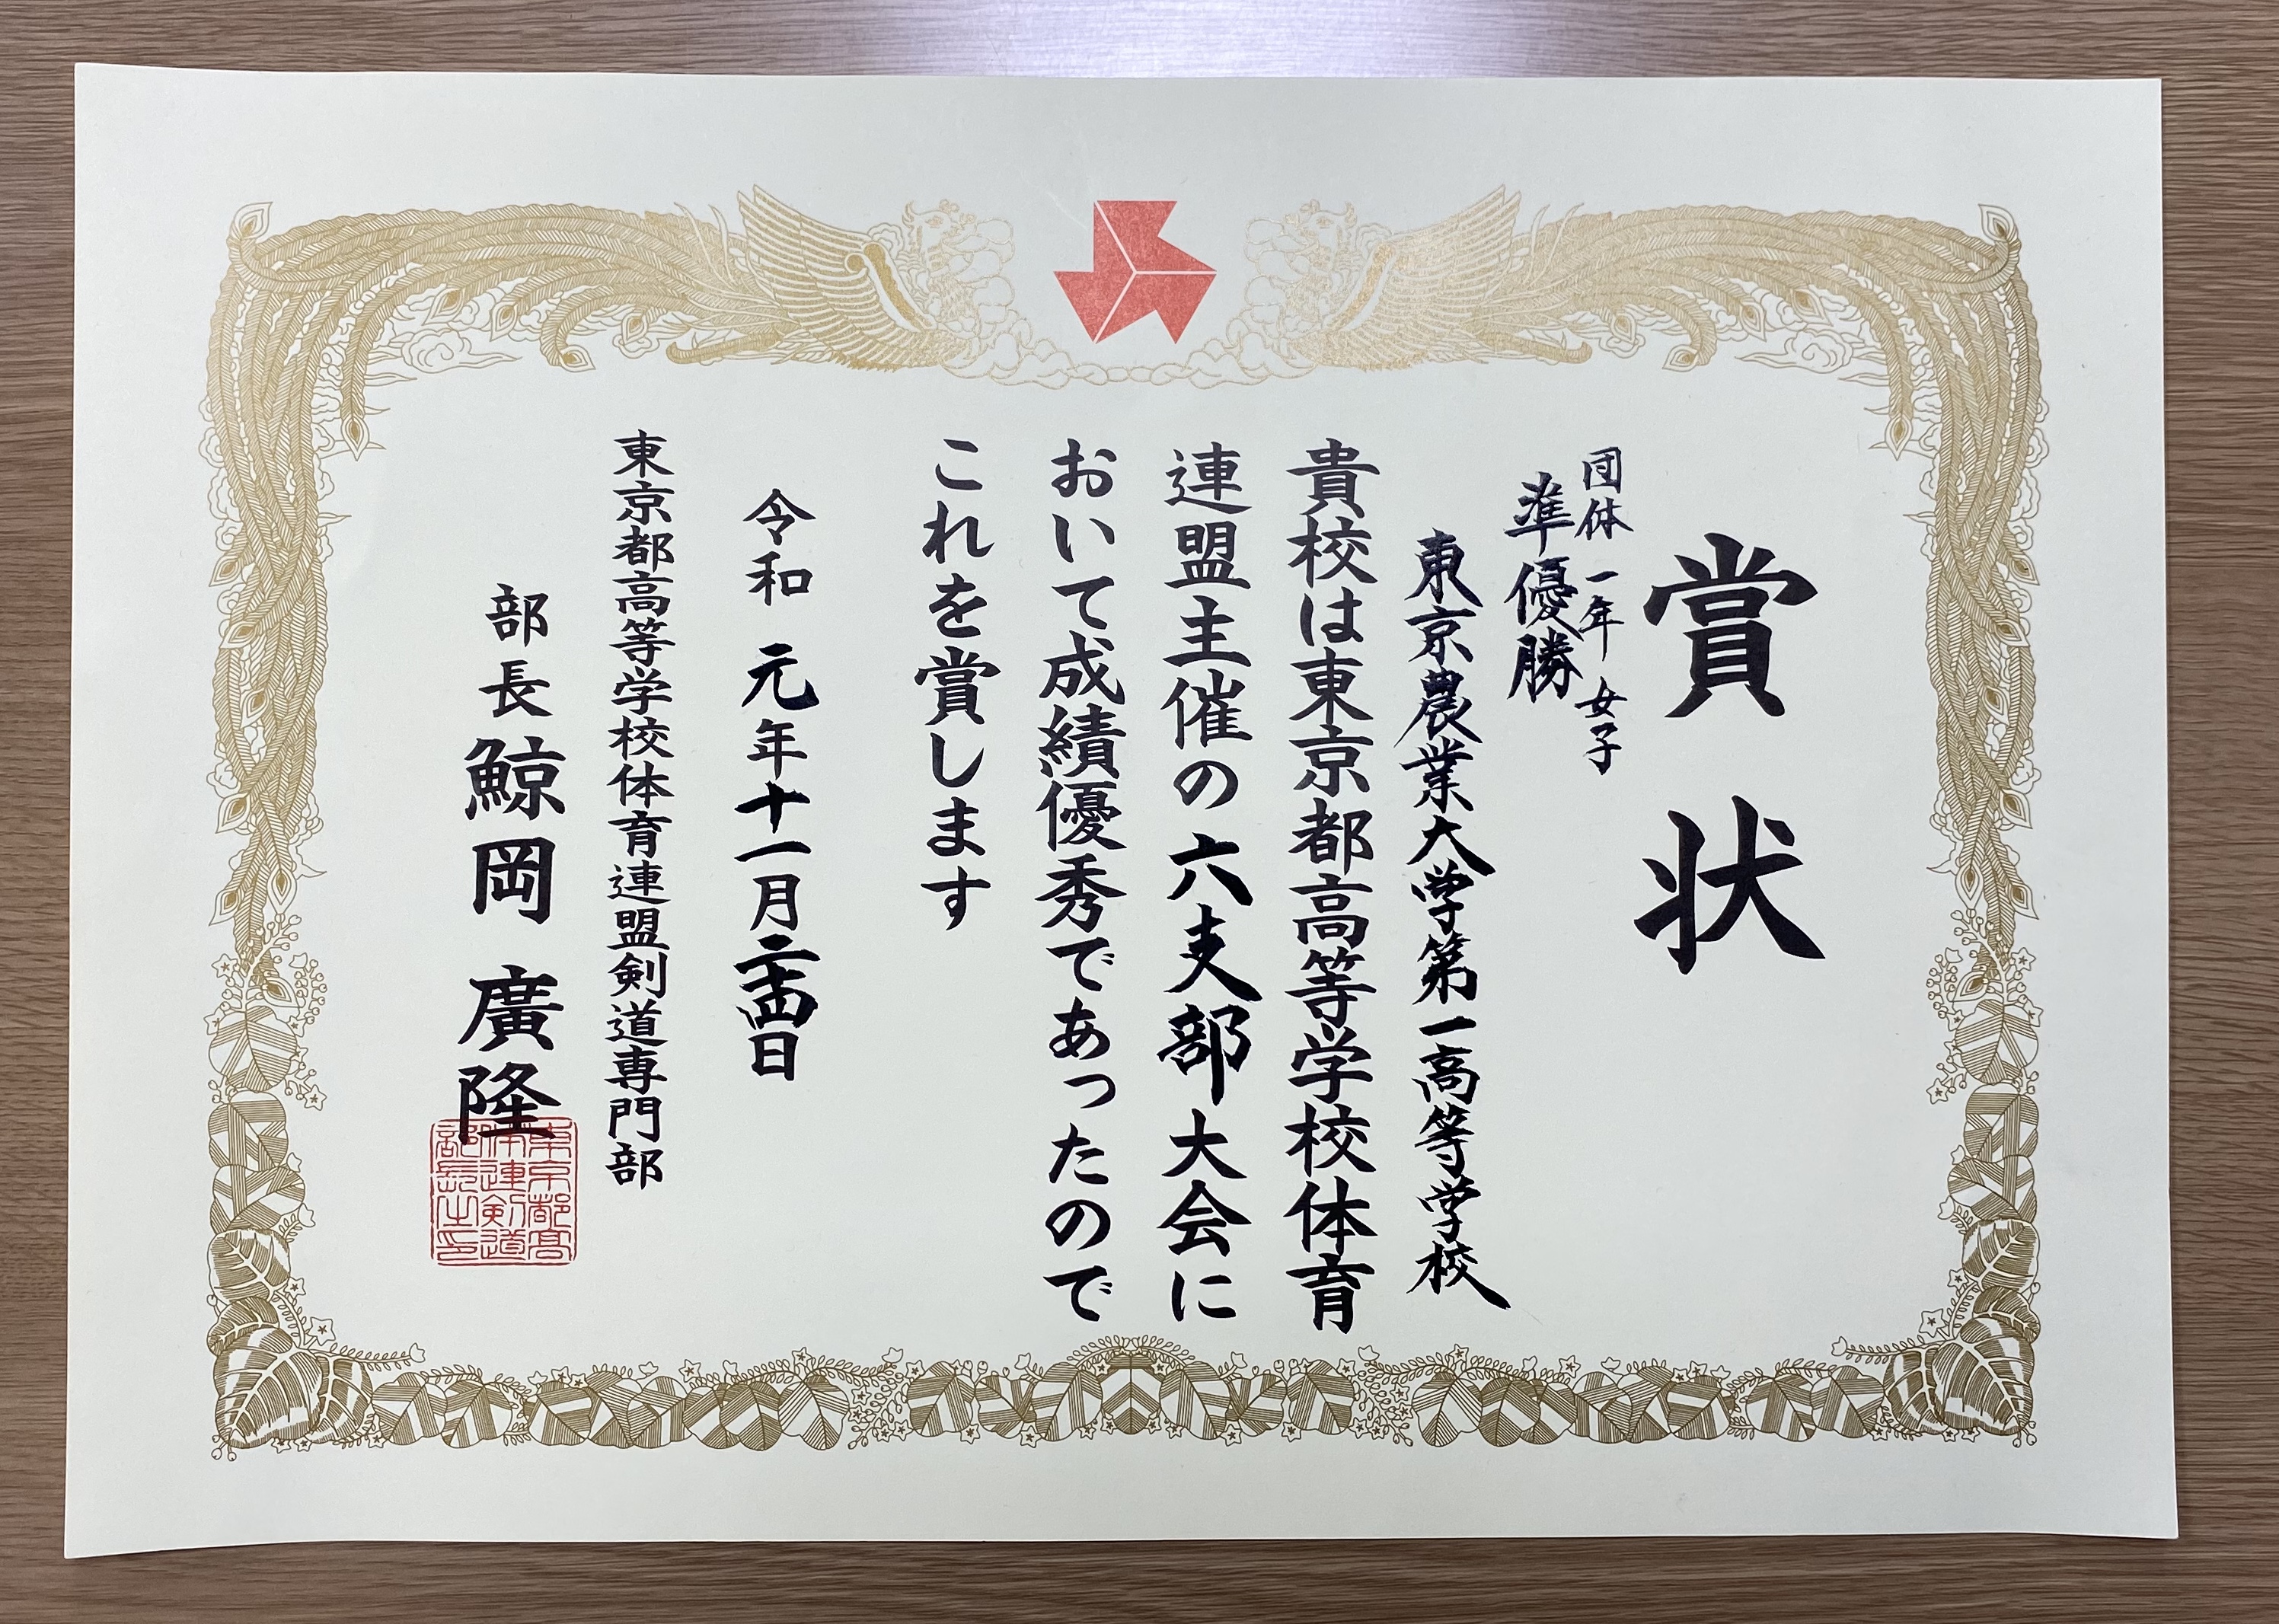 賞状
団体 一年 女子
準優勝
東京農業大学第一高等学校
貴校は東京都高等学校体育
連盟主催の六支部大会に
おいて成績優秀であったので
これを賞します
令和元年十一月二十四日
東京都高等学校体育連盟剣道専門部
部長 鯨岡 廣隆